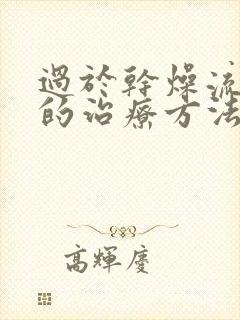 過於幹燥流
的治療方法
高輝廖